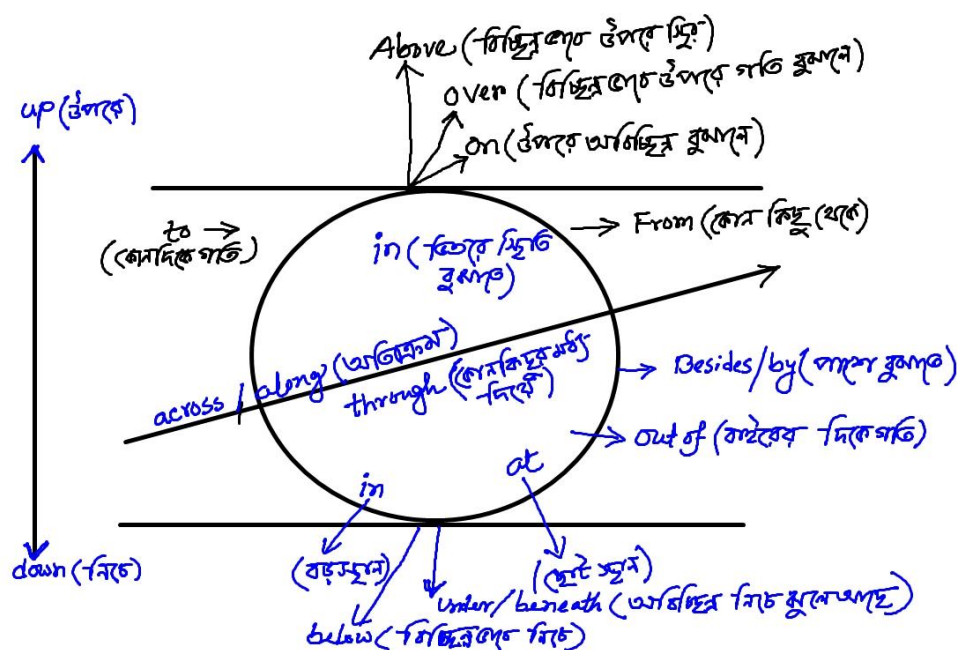 Above (বিচ্ছিন্ন ভাবে উপরে স্থির)
over (বিচ্ছিন্নভাবে উপরে গতি বুঝালে)
on (উপরে অবিচ্ছিন্ন বুঝালে)
up (উপরে)
to →
(কোনদিকে গতি)
From (কোন কিছু থেকে)
in (ভিতরে স্থিতি
বুঝাতে)
across / along (অতিক্রম)
through (কোনকিছুর মধ্য
দিয়ে)
Besides/by (পাশে বুঝাতে)
out of (বাইরের দিকে গতি)
in
at
(বড় স্থান)
(ছোট স্থান)
down (নিচে)
under/beneath (অবিচ্ছিন্ন নিচে ঝুলে আছে)
below (বিচ্ছিন্নভাবে নিচে)